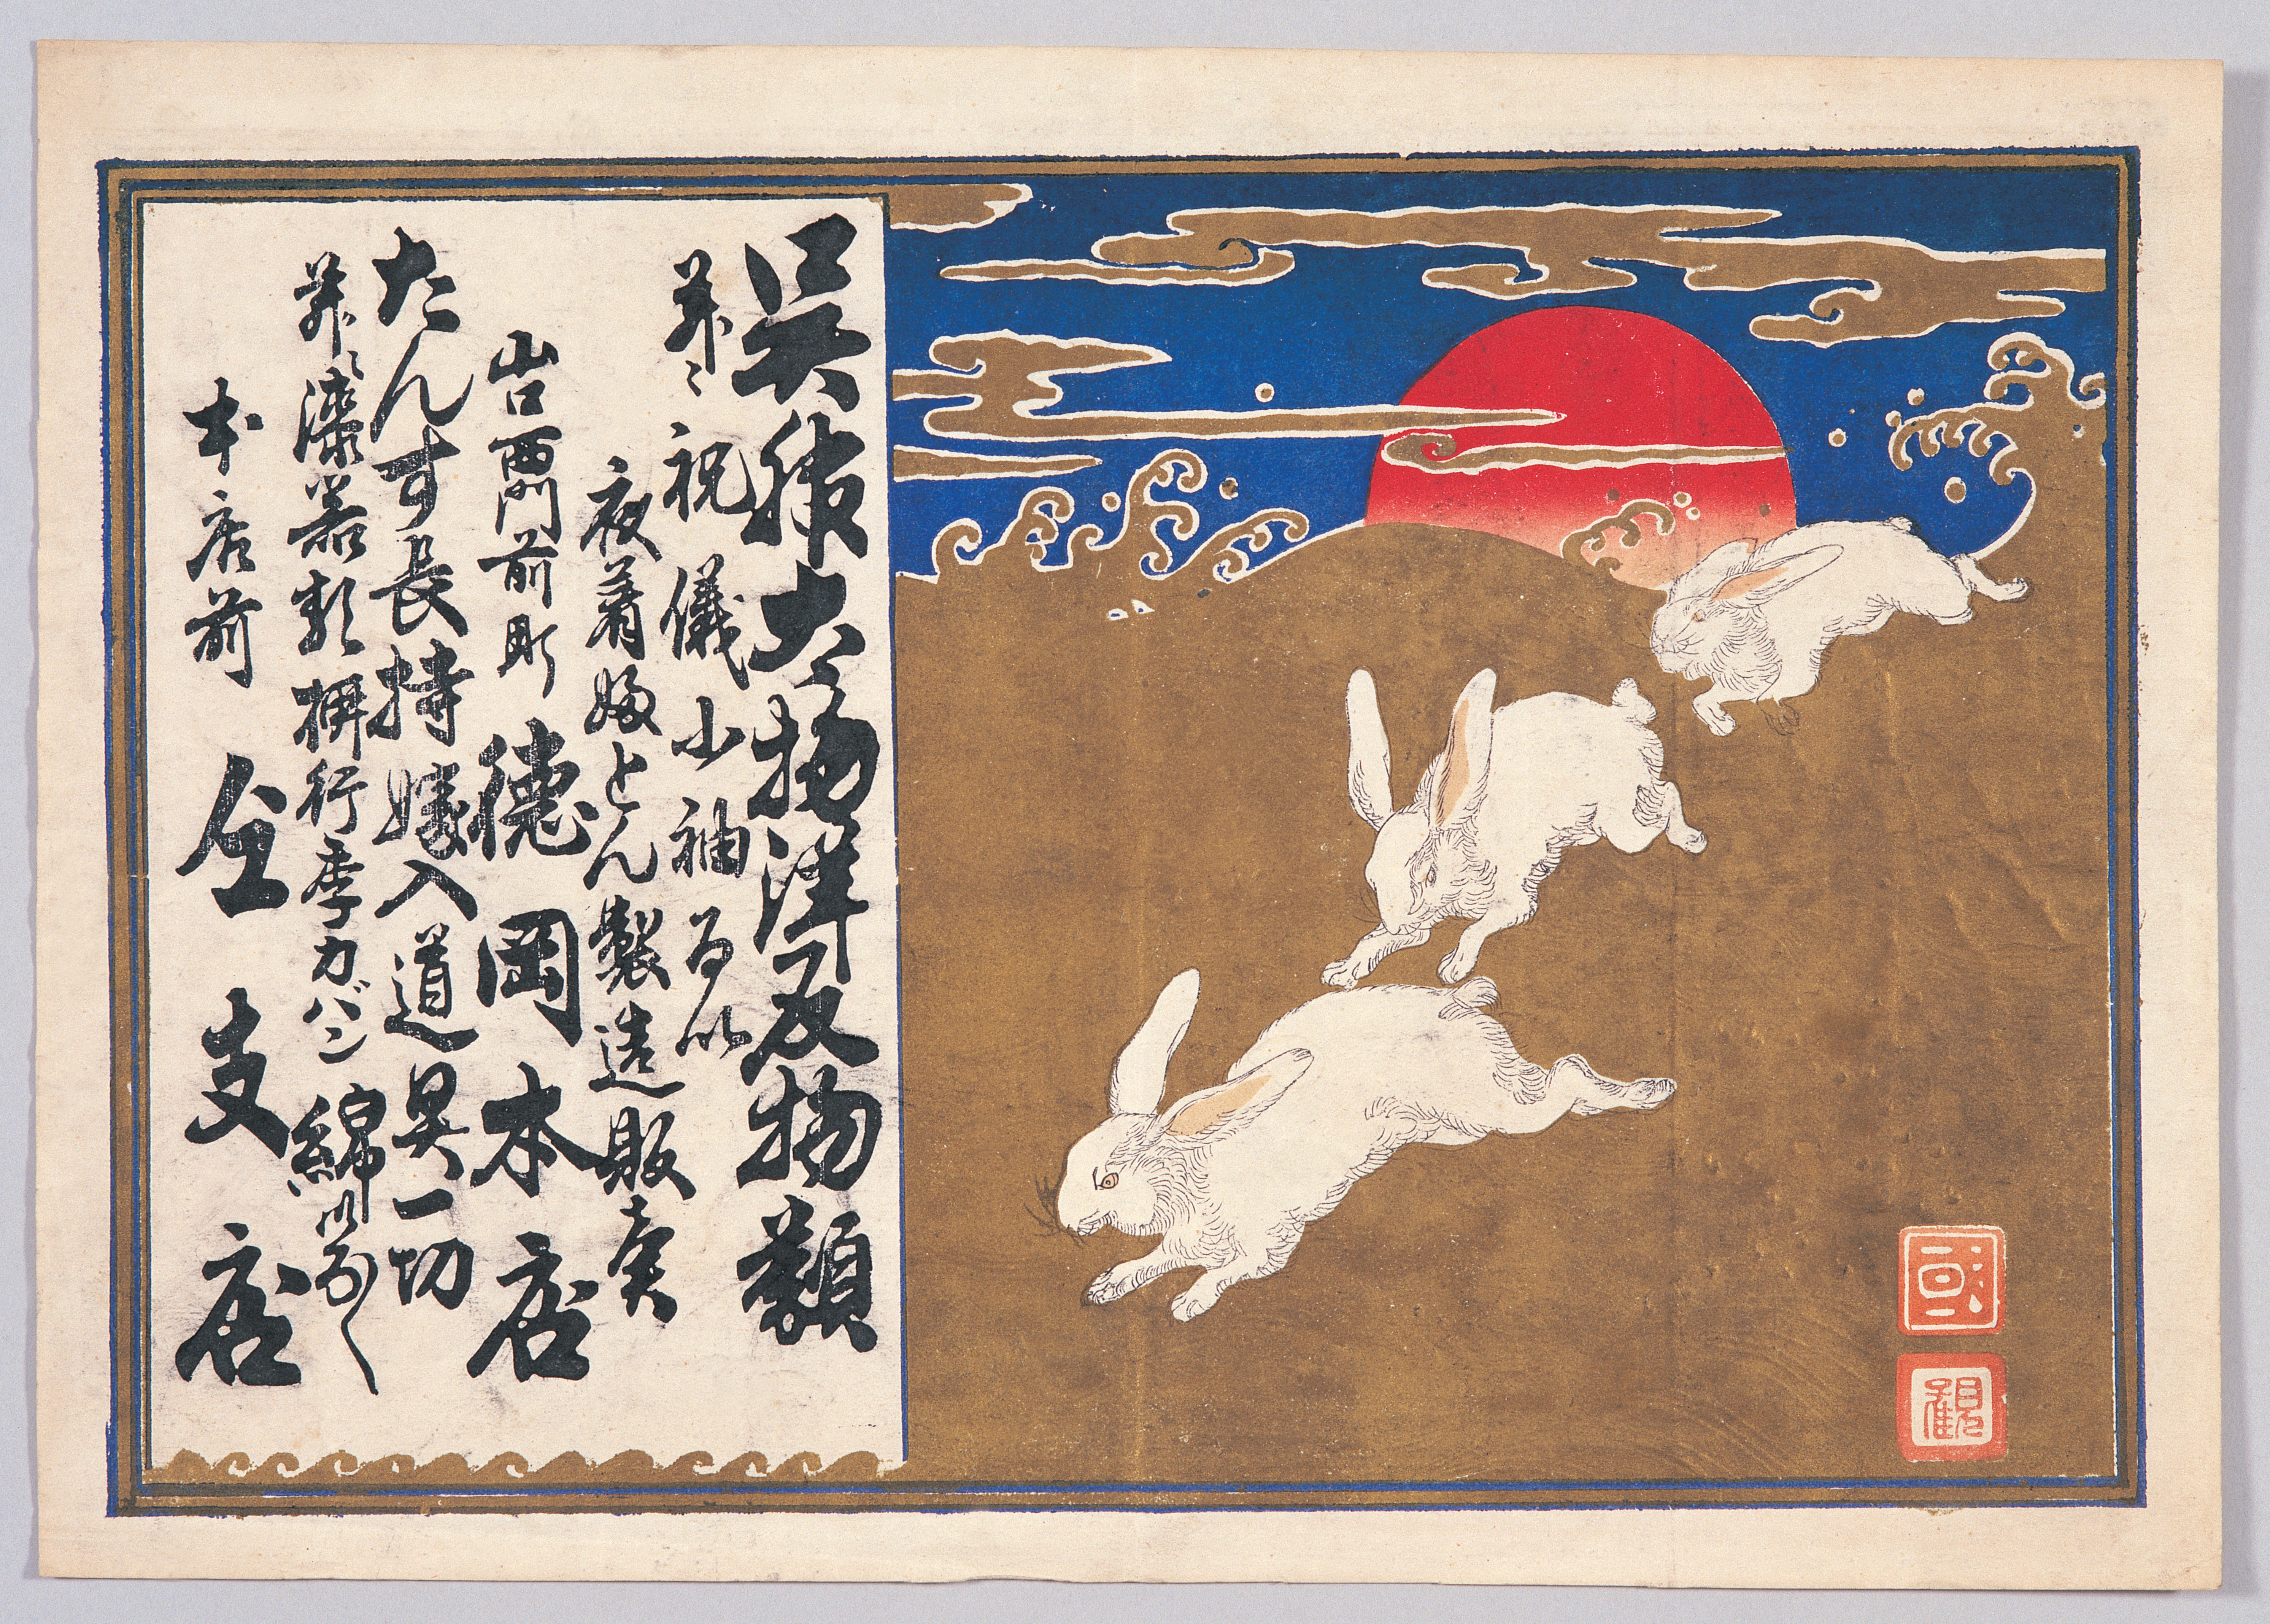 呉服太物洋反物類
并ニ祝儀小袖るい
夜着婦とん製造販売
山口西門前町 徳岡本店
たんす長持嫁入道具一切
并ニ漆器類柳行季カバン綿
本店前 仝支店
國
観